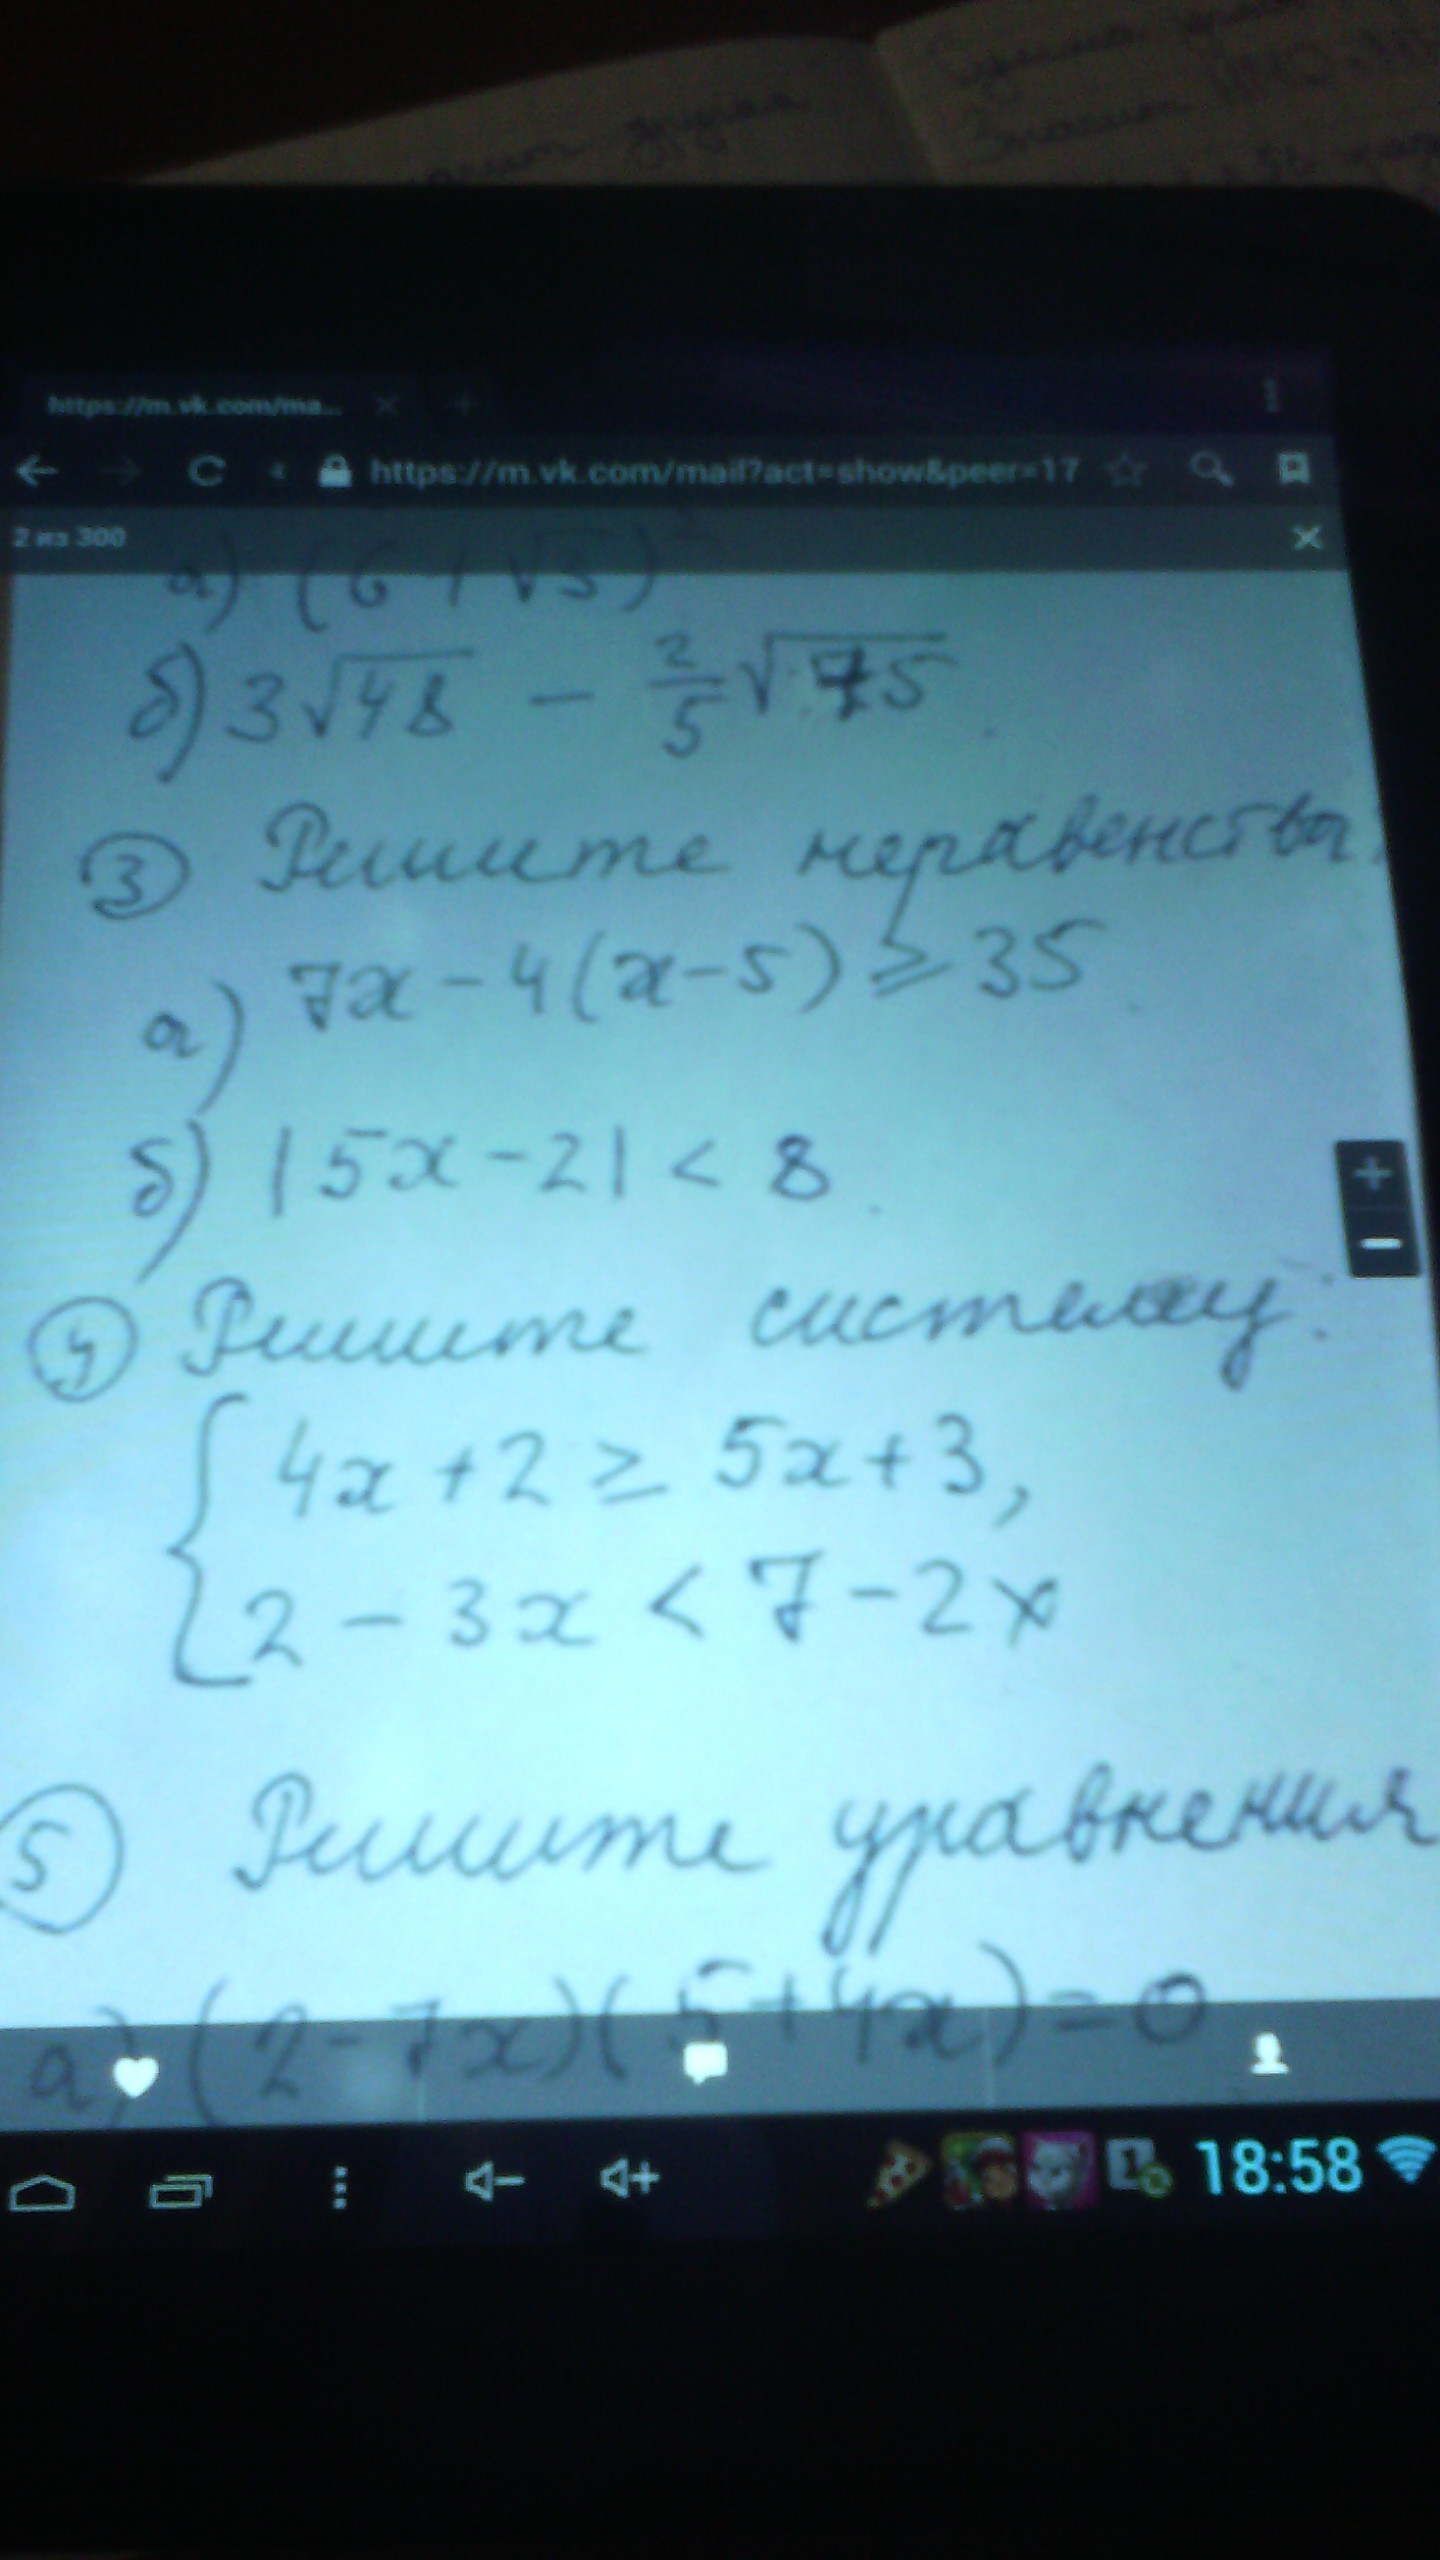 другая
Значит
https://m.vk.com/ma...
https://m.vk.com/mail?act=show&peer=17
2 из 300
а) (6 + √3)²
б) 3√48 - 2/5 √75
③ Решите неравенства:
а) 7x - 4(x - 5) ≥ 35
б) |5x - 2| < 8
④ Решите систему:
{ 4x + 2 ≥ 5x + 3,
2 - 3x < 7 - 2x
⑤ Решите уравнения
а) (2 - 7x)(5 + 4x) = 0
18:58